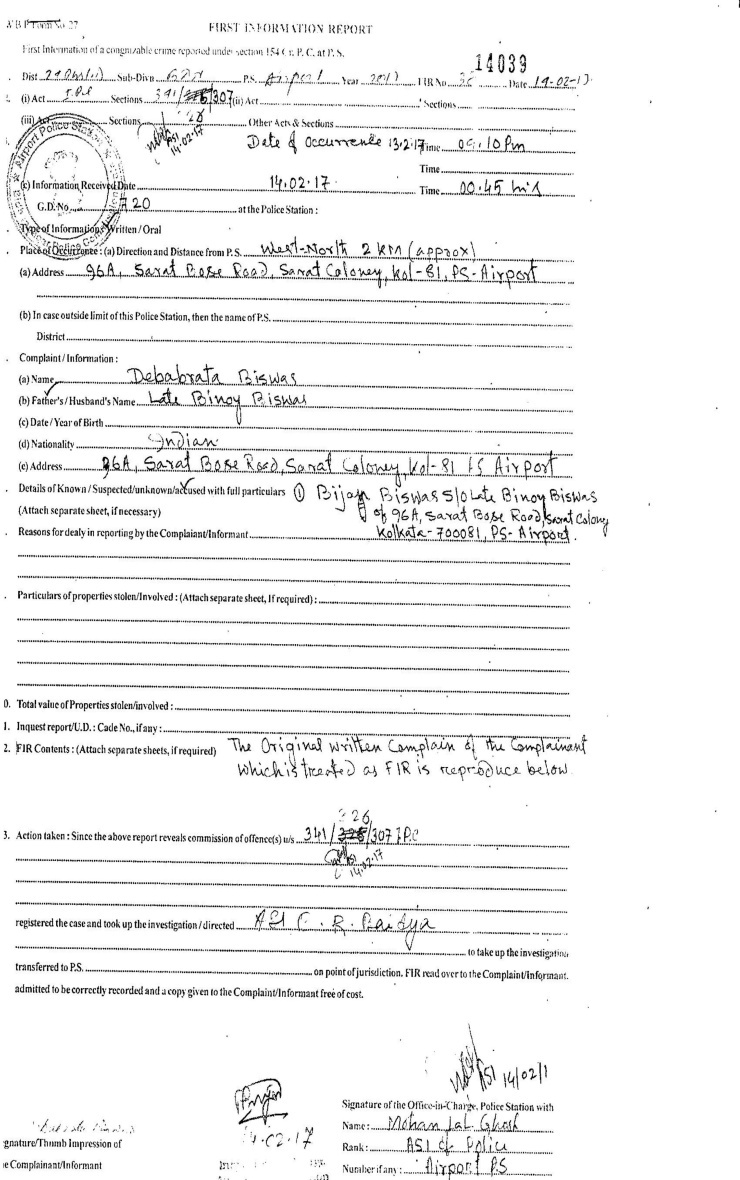 W.B.P Form No. 27
FIRST INFORMATION REPORT
First Information of a congnizable crime reported under section 154 Cr. P. C. at P. S.
14039
Dist Sub-Divn P.S. Airport Year 2017 FIR No Date 14-02-17
(i) Act I.P.C Sections 341/ /307 (ii) Act Sections
326
(iii) Act Sections Other Acts & Sections
ASI
14.02.17
Date of occurrence 13.2.17 Time 09.10 Pm
Time
(c) Information Received Date 14.02.17 Time 00.45 hrs
G.D. No. 720 at the Police Station :
Airport Police Station
Type of Information: Written / Oral
Place of Occurrence : (a) Direction and Distance from P.S. West-North 2 KM (approx)
(a) Address 96A, Sarat Bose Road, Sarat Coloney, Kol-81, PS-Airport
(b) In case outside limit of this Police Station, then the name of P.S.
District
Complaint / Information :
(a) Name Debabrata Biswas
(b) Father's / Husband's Name Late Binoy Biswas
(c) Date / Year of Birth
(d) Nationality Indian
(e) Address 96A, Sarat Bose Road, Sarat Coloney, Kol-81 PS Airport
Details of Known / Suspected/unknown/accused with full particulars ① Bijan Biswas S/O Late Binoy Biswas
(Attach separate sheet, if necessary) of 96A, Sarat Bose Road, Sarat Colony
Reasons for dealy in reporting by the Complaiant/Informant Kolkata-700081, PS- Airport.
Particulars of properties stolen/Involved : (Attach separate sheet, If required) :
0. Total value of Properties stolen/involved :
1. Inquest report/U.D. : Cade No., if any :
2. FIR Contents : (Attach separate sheets, if required) The Original written Complain of the Complainant
which is treated as FIR is reproduce below
326
3. Action taken : Since the above report reveals commission of offence(s) u/s 341/325/307 IPC
ASI
14.02.17
registered the case and took up the investigation / directed ASI C. R. Baidya
to take up the investigation
transferred to P.S. on point of jurisdiction. FIR read over to the Complaint/Informant.
admitted to be correctly recorded and a copy given to the Complaint/Informant free of cost.
ASI 14/02/1
Signature of the Office-in-Charge, Police Station with
14.02.17
Name : Mohan Lal Ghosh
gnature/Thumb Impression of
Rank : ASI of Police
e Complainant/Informant
Number if any : Airport PS